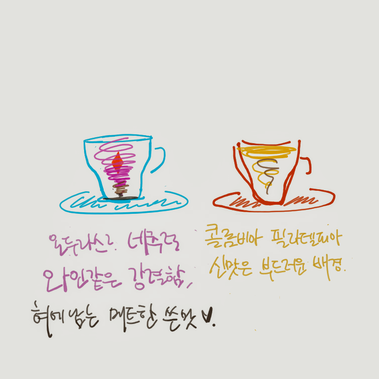 온두라스? 네추럴
와인같은 강렬함,
혀에 남는 매트한 쓴맛.
콜롬비아 필라델피아
신맛은 부드러움 배경.